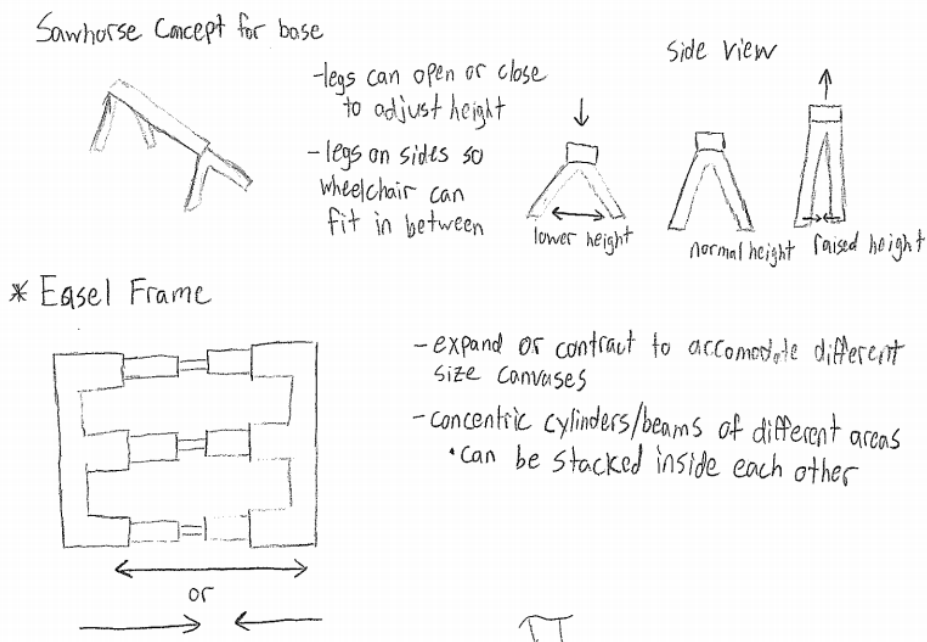 Sawhorse Concept for base
-legs can open or close
to adjust height
-legs on sides so
wheelchair can
fit in between
Side View
lower height
normal height
raised height
* Easel Frame
-expand or contract to accomodate different
size canvases
-concentric cylinders/beams of different areas
•can be stacked inside each other
or